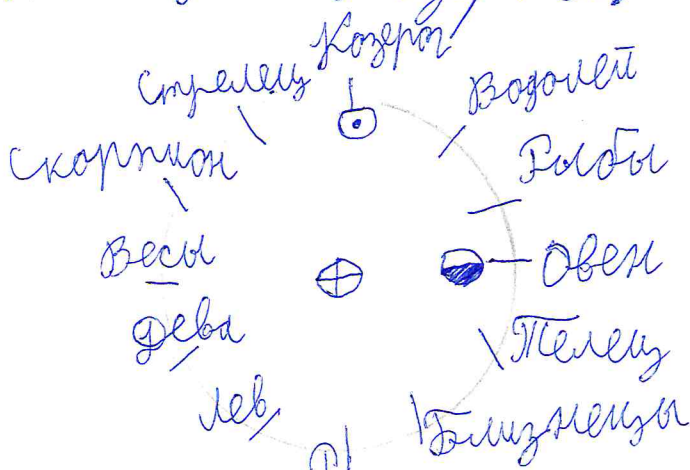 Козерог
Стрелец
Водолей
Скорпион
Рыбы
Весы
Овен
Дева
Телец
Лев
Близнецы